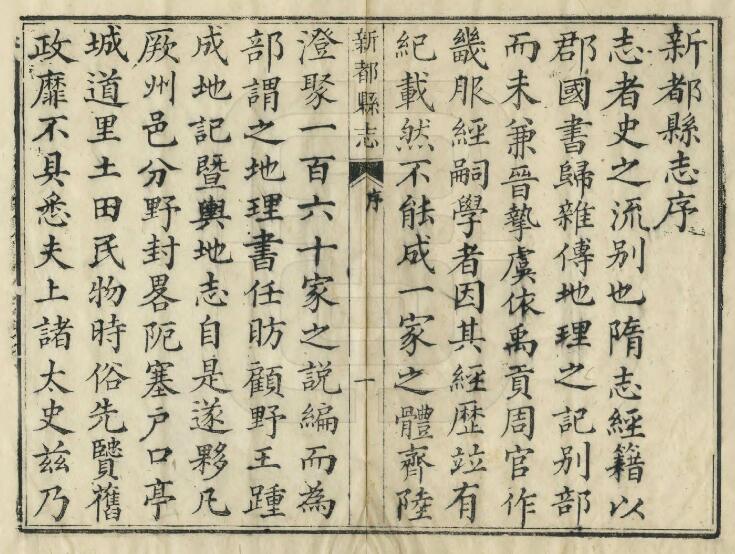 新都縣志序
志者史之流别也隋志經籍以
郡國書歸雜傳地理之記别部
而未兼晉摯虞依禹貢周官作
畿服經嗣學者因其經歷竝有
紀載然不能成一家之體齊陸
新都縣志 序 一
澄聚一百六十家之説編而為
部謂之地理書任昉顧野王踵
成地記暨輿地志自是遂夥凡
厥州邑分野封畧阨塞户口亭
城道里土田民物時俗先賢舊
政靡不具悉夫上諸太史兹乃